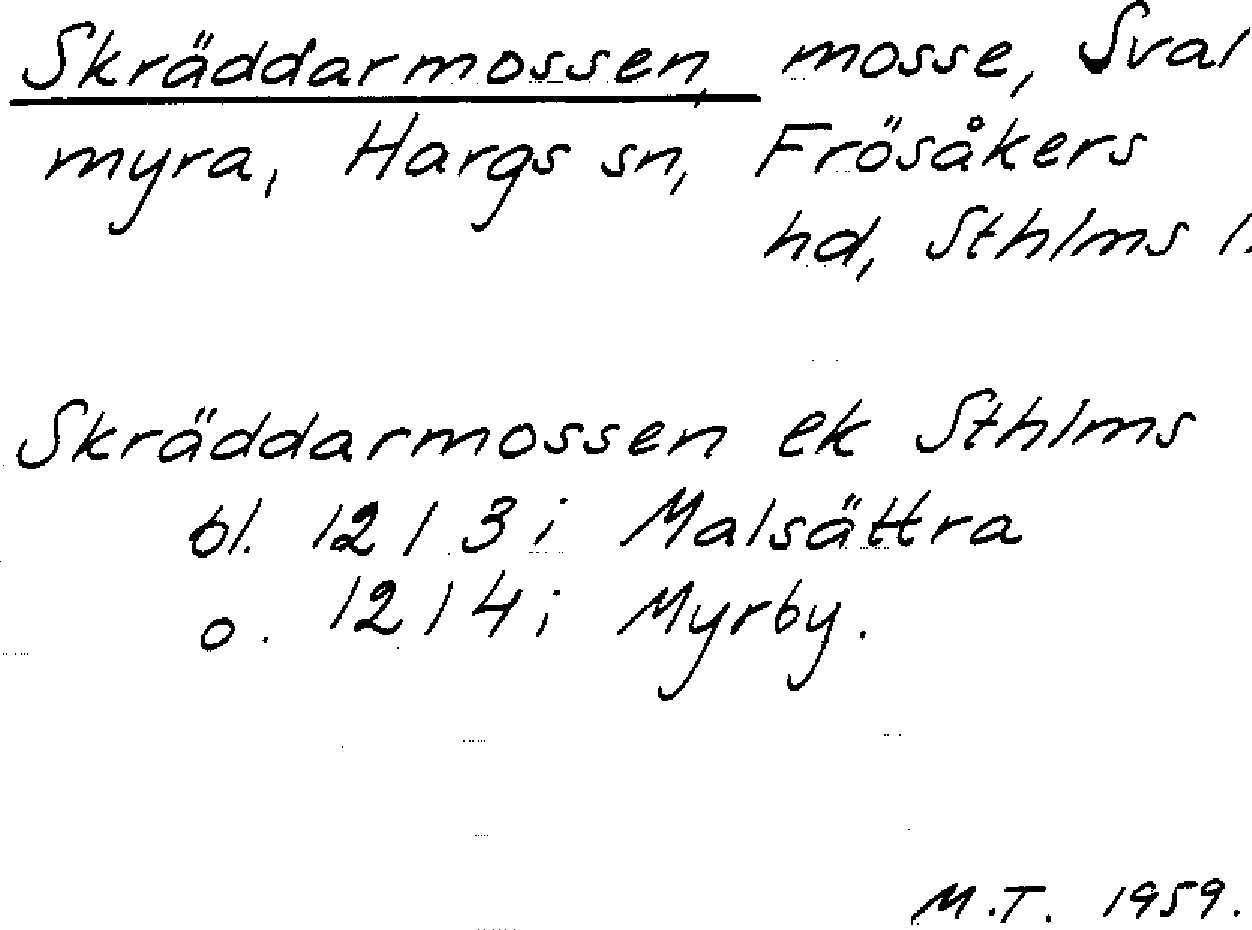 Skräddarmossen, mosse, Sval
myra, Hargs sn, Frösåkers
hd, Sthlms l.
Skräddarmossen ek Sthlms
bl. 12 1 3 i Malsättra
o. 12 1 4 i Myrby.
M.T. 1959.